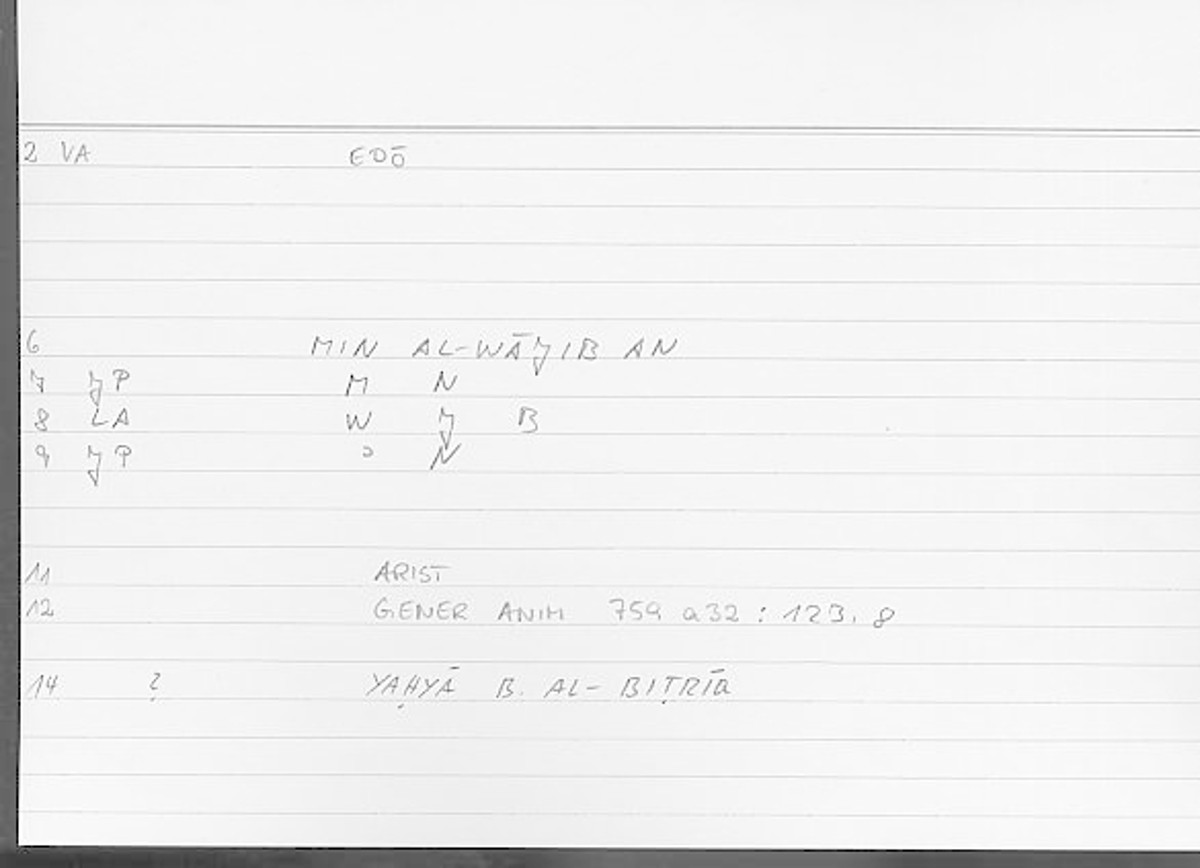 2 VA EDŌ
6 MIN AL-WĀJIB AN
7 JP M N
8 LA W J B
9 JP ʾ N
11 ARIST
12 GENER ANIM 759 a32 : 123. 8
14 ? YAḤYĀ B. AL-BIṬRĪQ